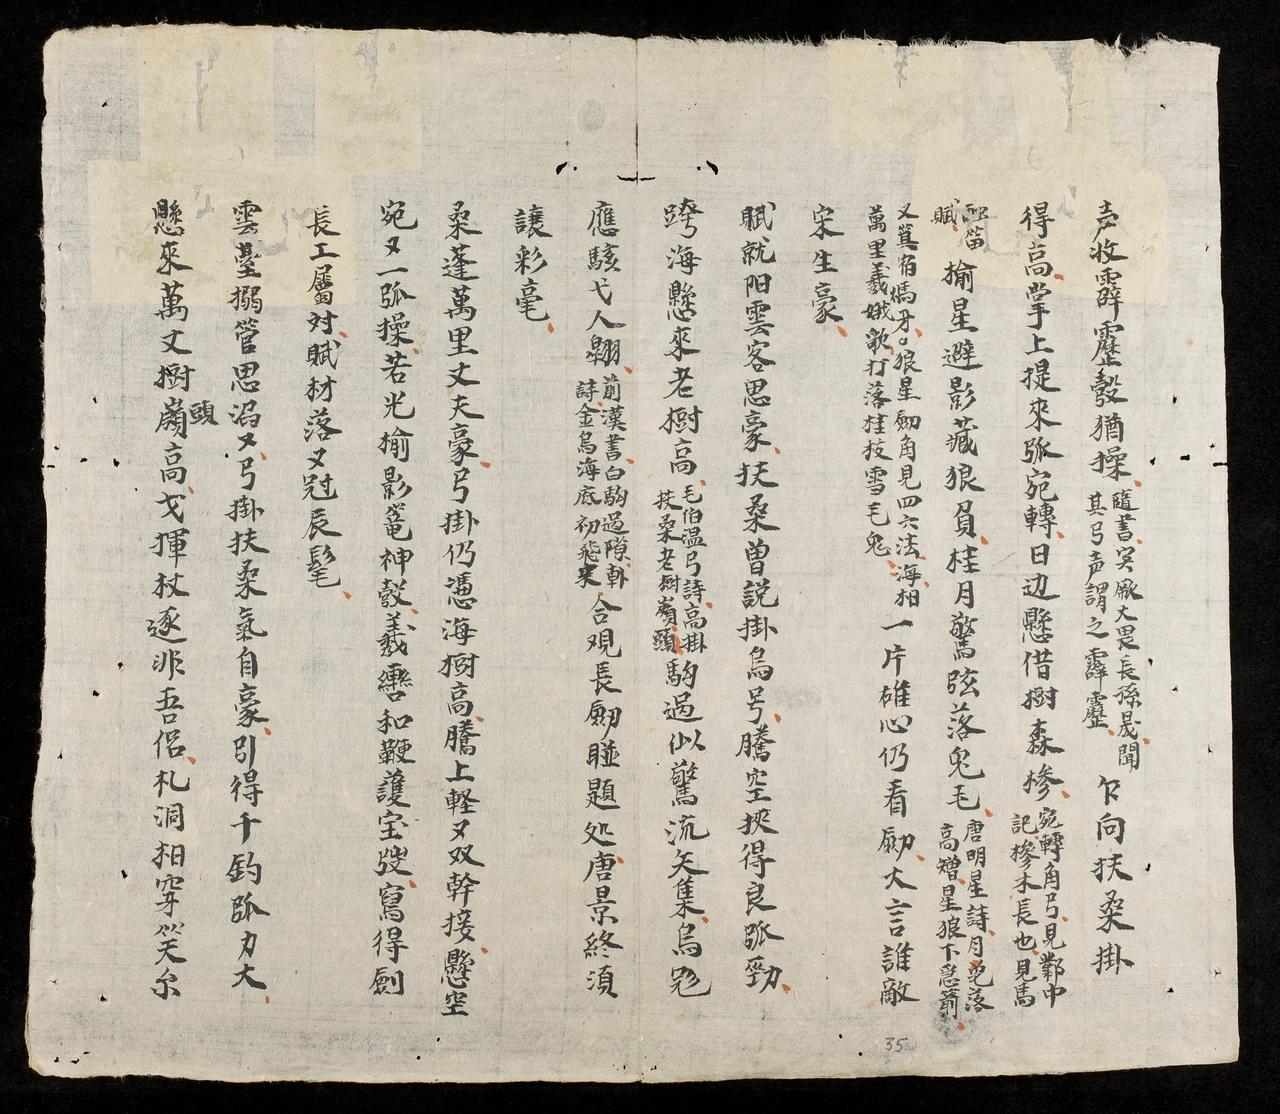 声收霹靂彀猶操隨書突厥大畏長孫晟聞其弓声謂之霹靂乍向扶桑掛
得高掌上提來弧宛轉日边懸借樹森椮宛轉角弓見鄴中記椮木長也見馬
融笛賦揄星避影藏狼負桂月驚弦落兔毛唐明星詩月兔落高矰星狼下急箭
又箕宿馮牙口狼星劒角見四六法海相萬里羲娥歌打落桂枝雪毛兔一片雄心仍看劒大言誰敵
宋生豪
賦就阳雲客思豪扶桑曾説掛烏号騰空挾得良弧勁
跨海懸來老樹高毛伯温弓詩高掛扶桑老樹嶺頭駒過似驚流矢集烏飛
應駭弋人翱前漢書白駒過隙軒詩金烏海底初飛來合观長劒碰題処唐景終須
讓彩毫
桑蓬萬里丈夫豪弓掛仍憑海樹高騰上軽又双幹接懸空
宛又一弧操若光揄影篭神彀羲轡和鞭護宝弢寫得劍
長工屬对賦材落又冠辰髦
雲臺搦管思滔又弓掛扶桑氣自豪引得千鈞弧力大
懸來萬丈樹嶺頭高戈揮杖逐非吾侣札洞相穿笑尓
35